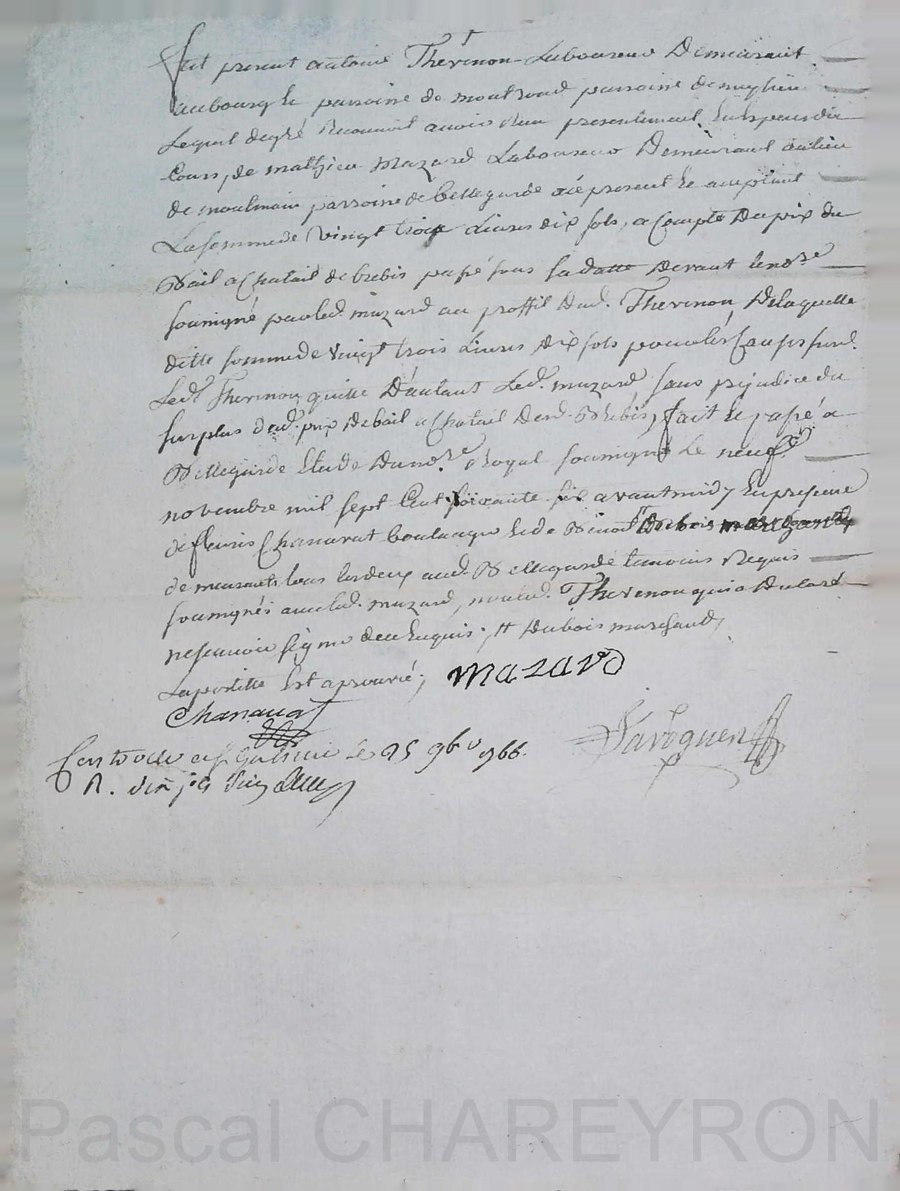 fut present antoine Thévenon Laboureur Demeurant
aubourg le parroisse de montrond parroisse de meylieu
Lequel de gré Reconnoit avoir Reçu presentement En Espeau du
Cours, de mathieu Mazard Laboureur Demeurant au lieu
de moulmain parroisse de bellegarde icé present Et aceptant
La somme de vingt trois Livres dix sols, a Compte Du prix du
Bail a Chatail de brebis passé sous sa datte Devant le no.re
soussigné par led. mazard au proffit dud. Thevenon, De laquelle
ditte somme de vingt trois Livres dix sols pour les Causes susd.
Led. Thevenon quitte D'autant Led. mazard sans prejudice du
surplus dud. prix De bail a Chatail Desd. Brebis, fait Et passé a
Bellegarde Etude Du no.re Royal soussigné Le neuf
novembre mil sept Cent soixante six avant midy En presence
de fleuris Chanavat boulanger Et de Benoit Dubois marchand
de tous Les deux aud. Bellegarde temoins Requis
soussignés avec led. mazard, non led. Thevenon qui a Declaré
ne sçavoir signer de ce Enquis, # Dubois marchand,
Lapostille Est aprouvée,
mazard
Chanavat
Controllé a St Galmier Le 15 9bre 1766.
R.